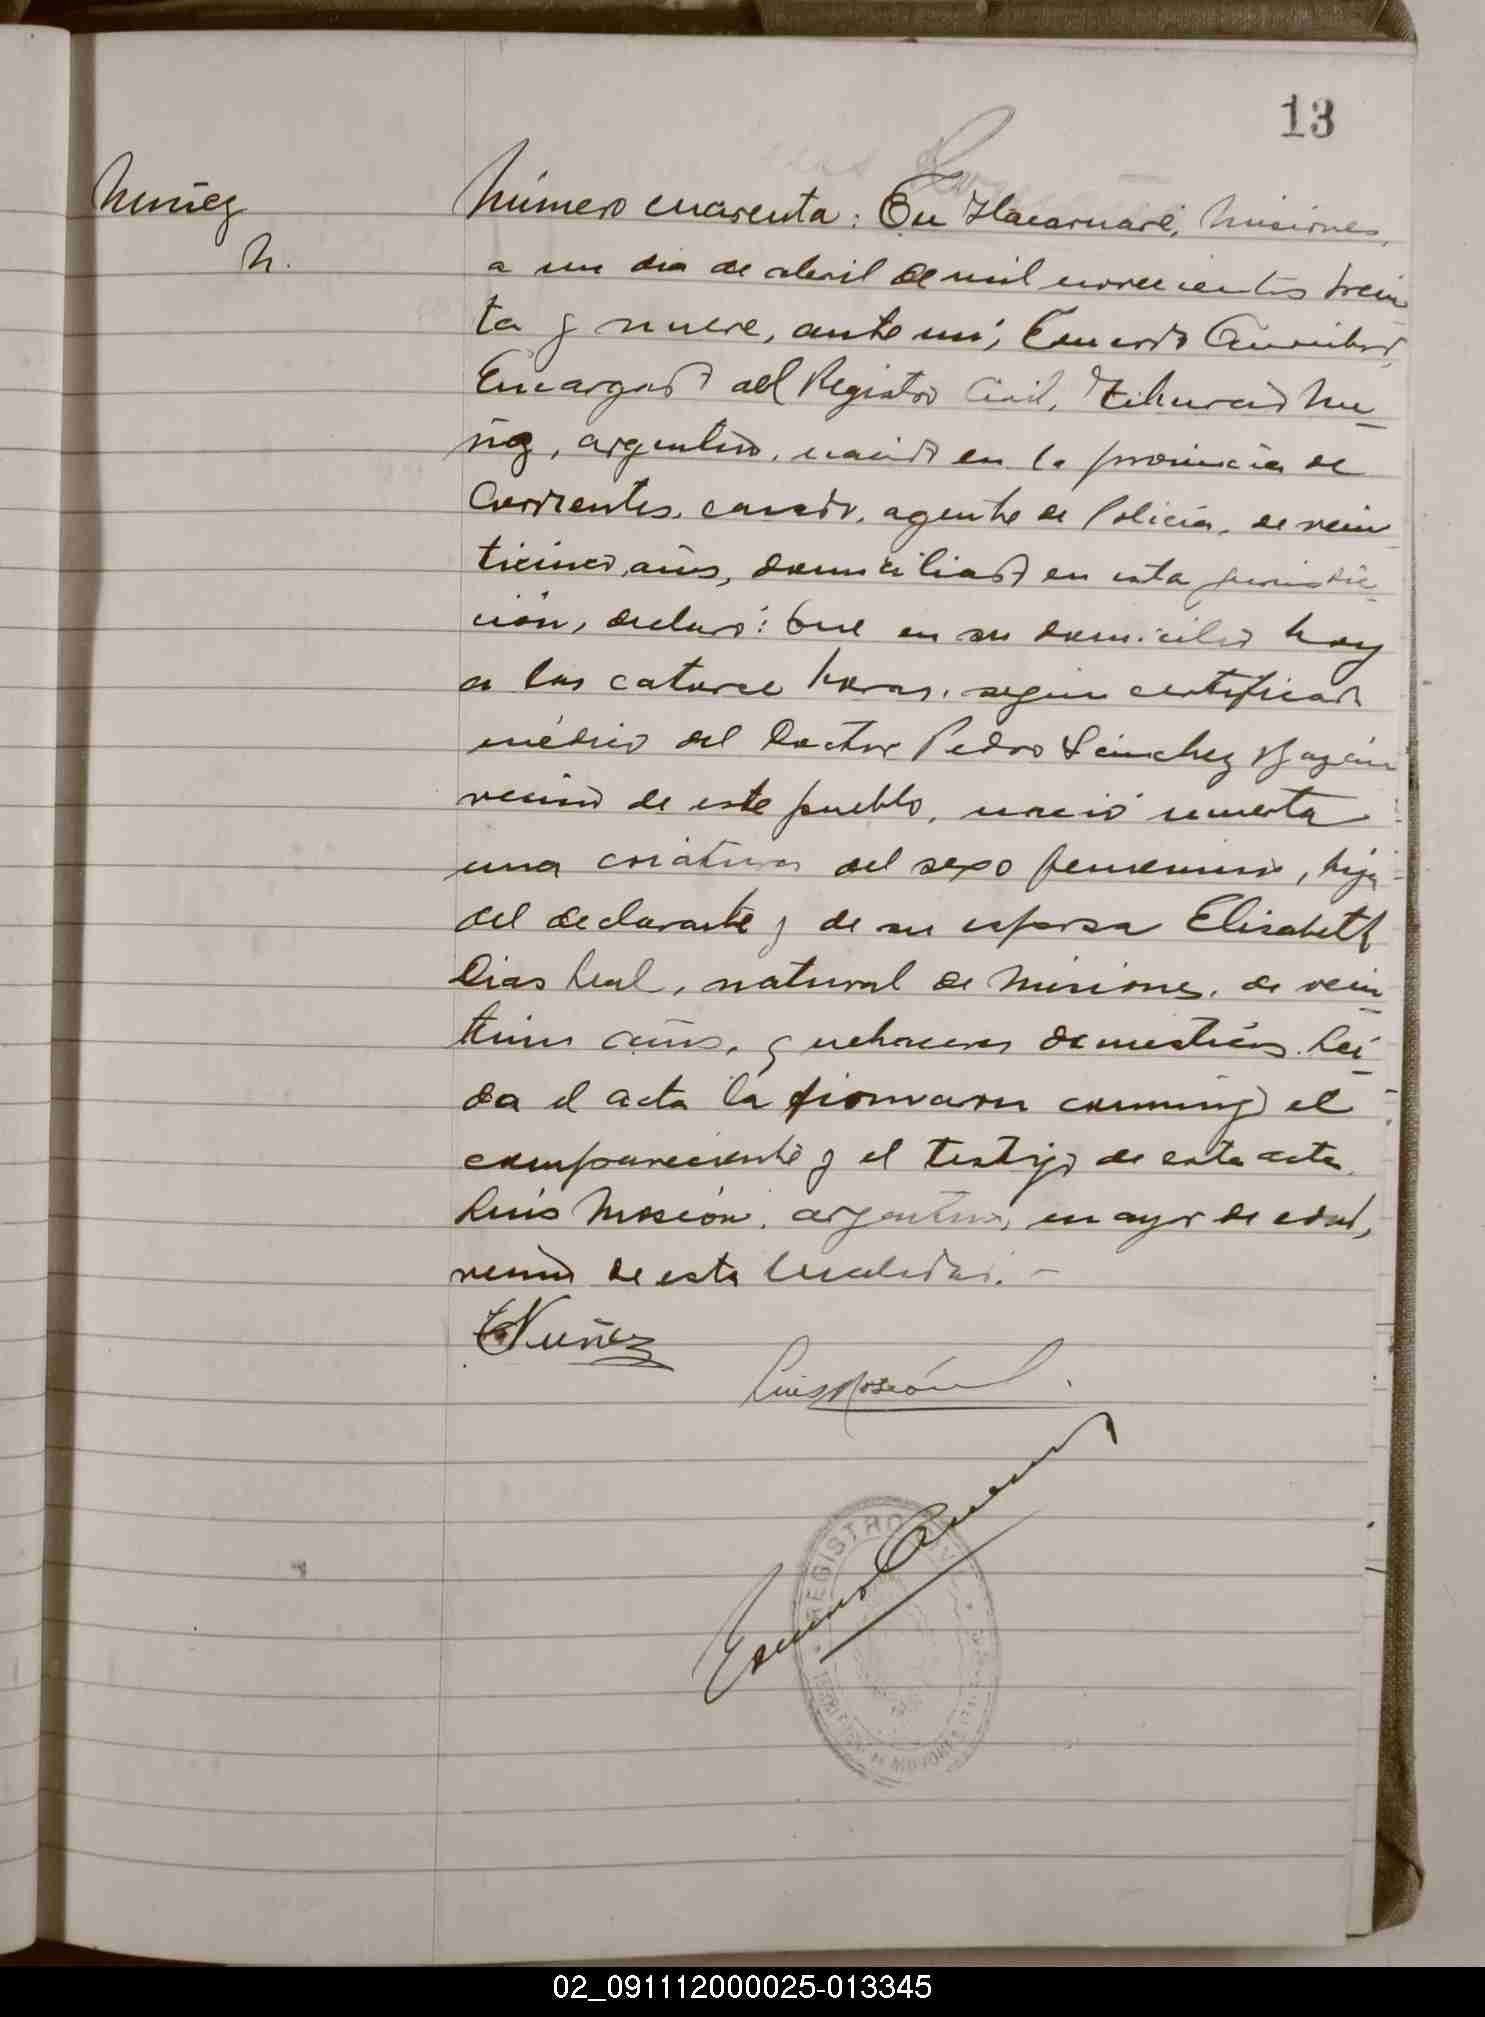 13
Nuñez
N.
Número cuarenta: En Itacaruaré, Misiones,
a un dia de abril de mil novecientos trein
ta y nueve, ante mi, Encargado del Registro Civil, Tiburcio Nu-
ñez, argentino, nacido en la provincia de
Corrientes, casado, agente de Policía, de vein
ticinco años, domiciliado en esta jurisdic-
ción, declaró: Que en su domicilio hoy
a las catorce horas, según certificado
médico del Doctor Pedro Sánchez Bazán
vecino de este pueblo, nació muerta
una criatura del sexo femenino, hija
del declarante y de su esposa Elisabeth
Dias Leal, natural de Misiones, de vein-
tiun años, quehaceres domesticos. Leí-
da el acta la firmaron conmigo el
compareciente y el testigo de esta acta
Luis Moseón, argentino, mayor de edad,
vecino de esta localidad.-
TNuñez
Luis Moseón
REGISTRO CIVIL
MISIONES
02_091112000025-013345